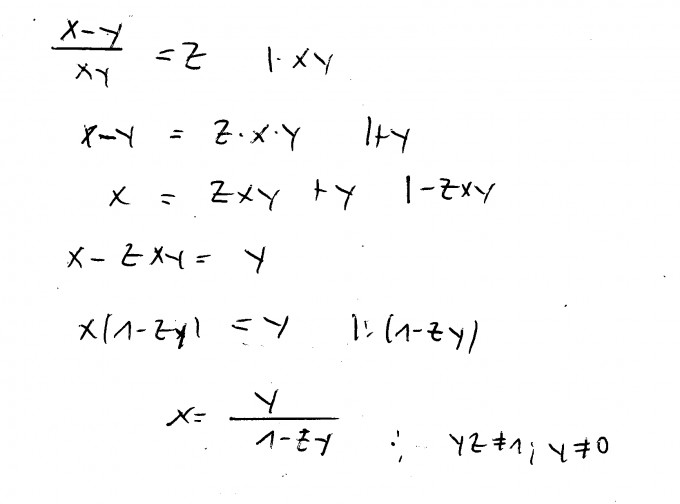 (x-y)/(xy) = z |· xy
x-y = z·x·y |+y
x = zxy +y |-zxy
x- zxy = y
x(1-zy) = y |: (1-zy)
x= y/(1-zy) ; yz≠1; y≠0